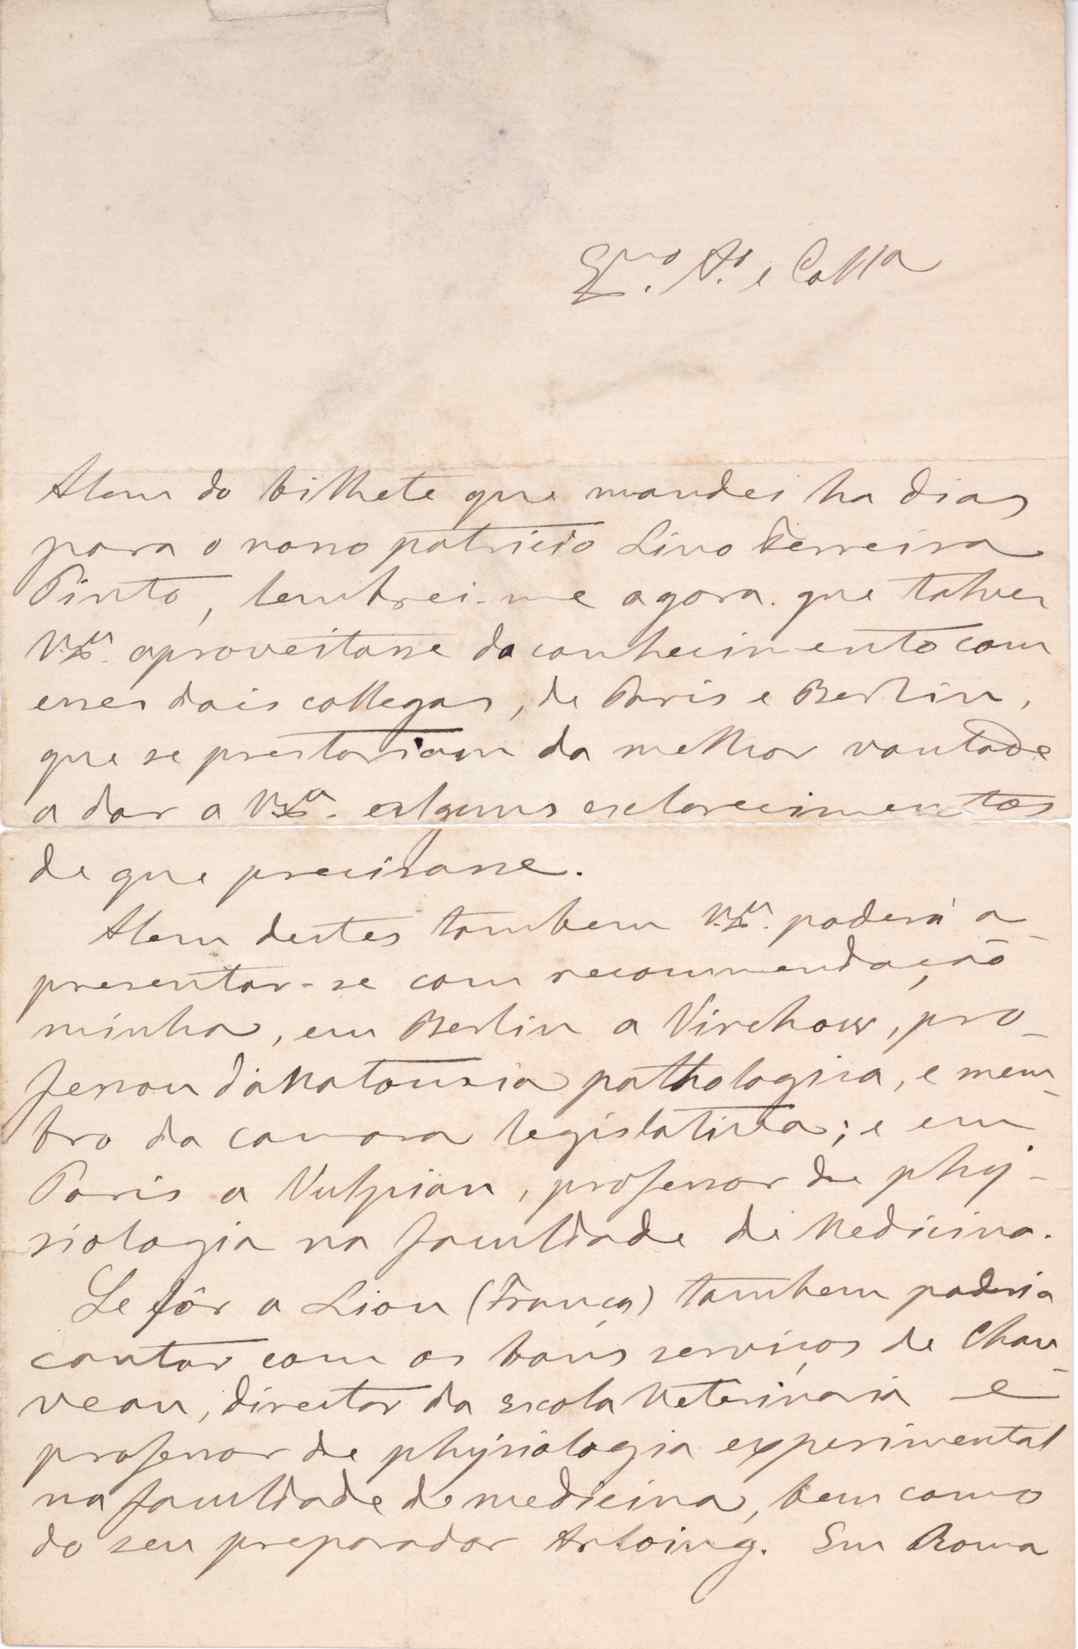 Exmo. Ao. e Colla
Alem do bilhete que mandei ha dias
para o nosso patricio Lino Ferreira
Pinto, lembrei-me agora que talvez
V.Exa. aproveitasse do conhecimento com
esses dois collegas, de Paris e Berlin,
que se prestariam da melhor vontade
a dar a V.Exa. alguns esclarecimentos
de que precisasse.
Alem destes tambem V.Exa. poderá a-
presentar-se com recommendação
minha, em Berlin a Virchow, pro-
fessou d'anatomia pathologica, e mem-
bro da camara legislativa; e em
Paris a Vulpian, professor de phy-
siologia na faculdade de Medicina.
Se fôr a Lion (França) tambem poderia
contar com os bons serviços de Chau-
veau, director da escola Veterinaria e
professor de physiologia experimental
na faculdade de medicina, bem como
do seu preparador Arloing. Em Roma